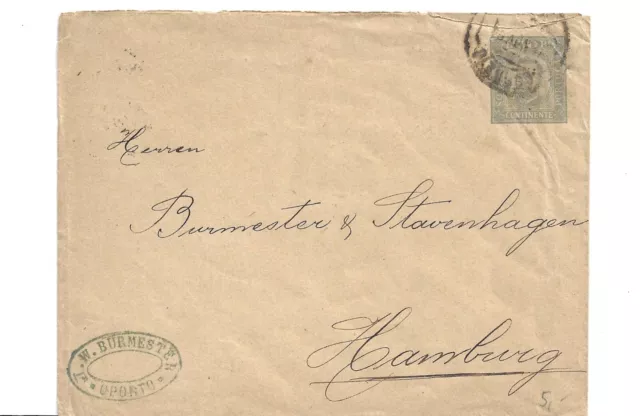 CONTINENTE
Herren
Burmester & Stavenhagen
Hamburg
J. W. BURMESTER
OPORTO
5,-